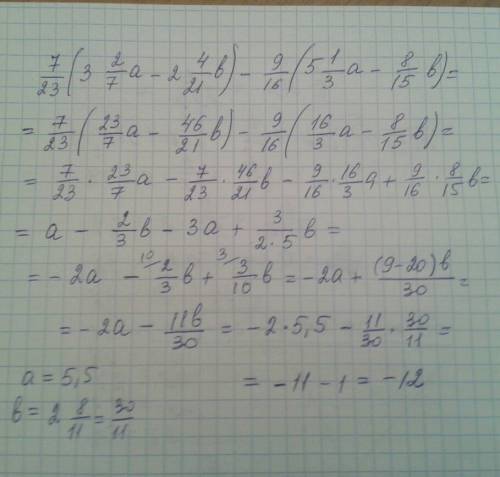 7/23 (3 2/7 a - 2 4/21 b) - 9/16 (5 1/3 a - 8/15 b) =
= 7/23 (23/7 a - 46/21 b) - 9/16 (16/3 a - 8/15 b) =
= 7/23 · 23/7 a - 7/23 · 46/21 b - 9/16 · 16/3 a + 9/16 · 8/15 b =
= a - 2/3 b - 3a + 3/(2·5) b =
= - 2a - ¹⁰⁄ 2/3 b + ³⁄ 3/10 b = -2a + (9-20)b/30 =
= - 2a - 11b/30 = -2·5,5 - 11/30 · 30/11 =
a = 5,5 = -11 - 1 = -12
b = 2 8/11 = 30/11